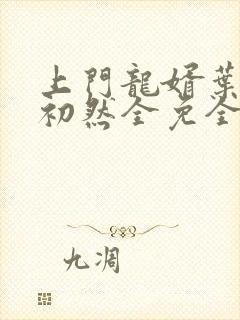 上門龍婿葉
初然全免全
九凋